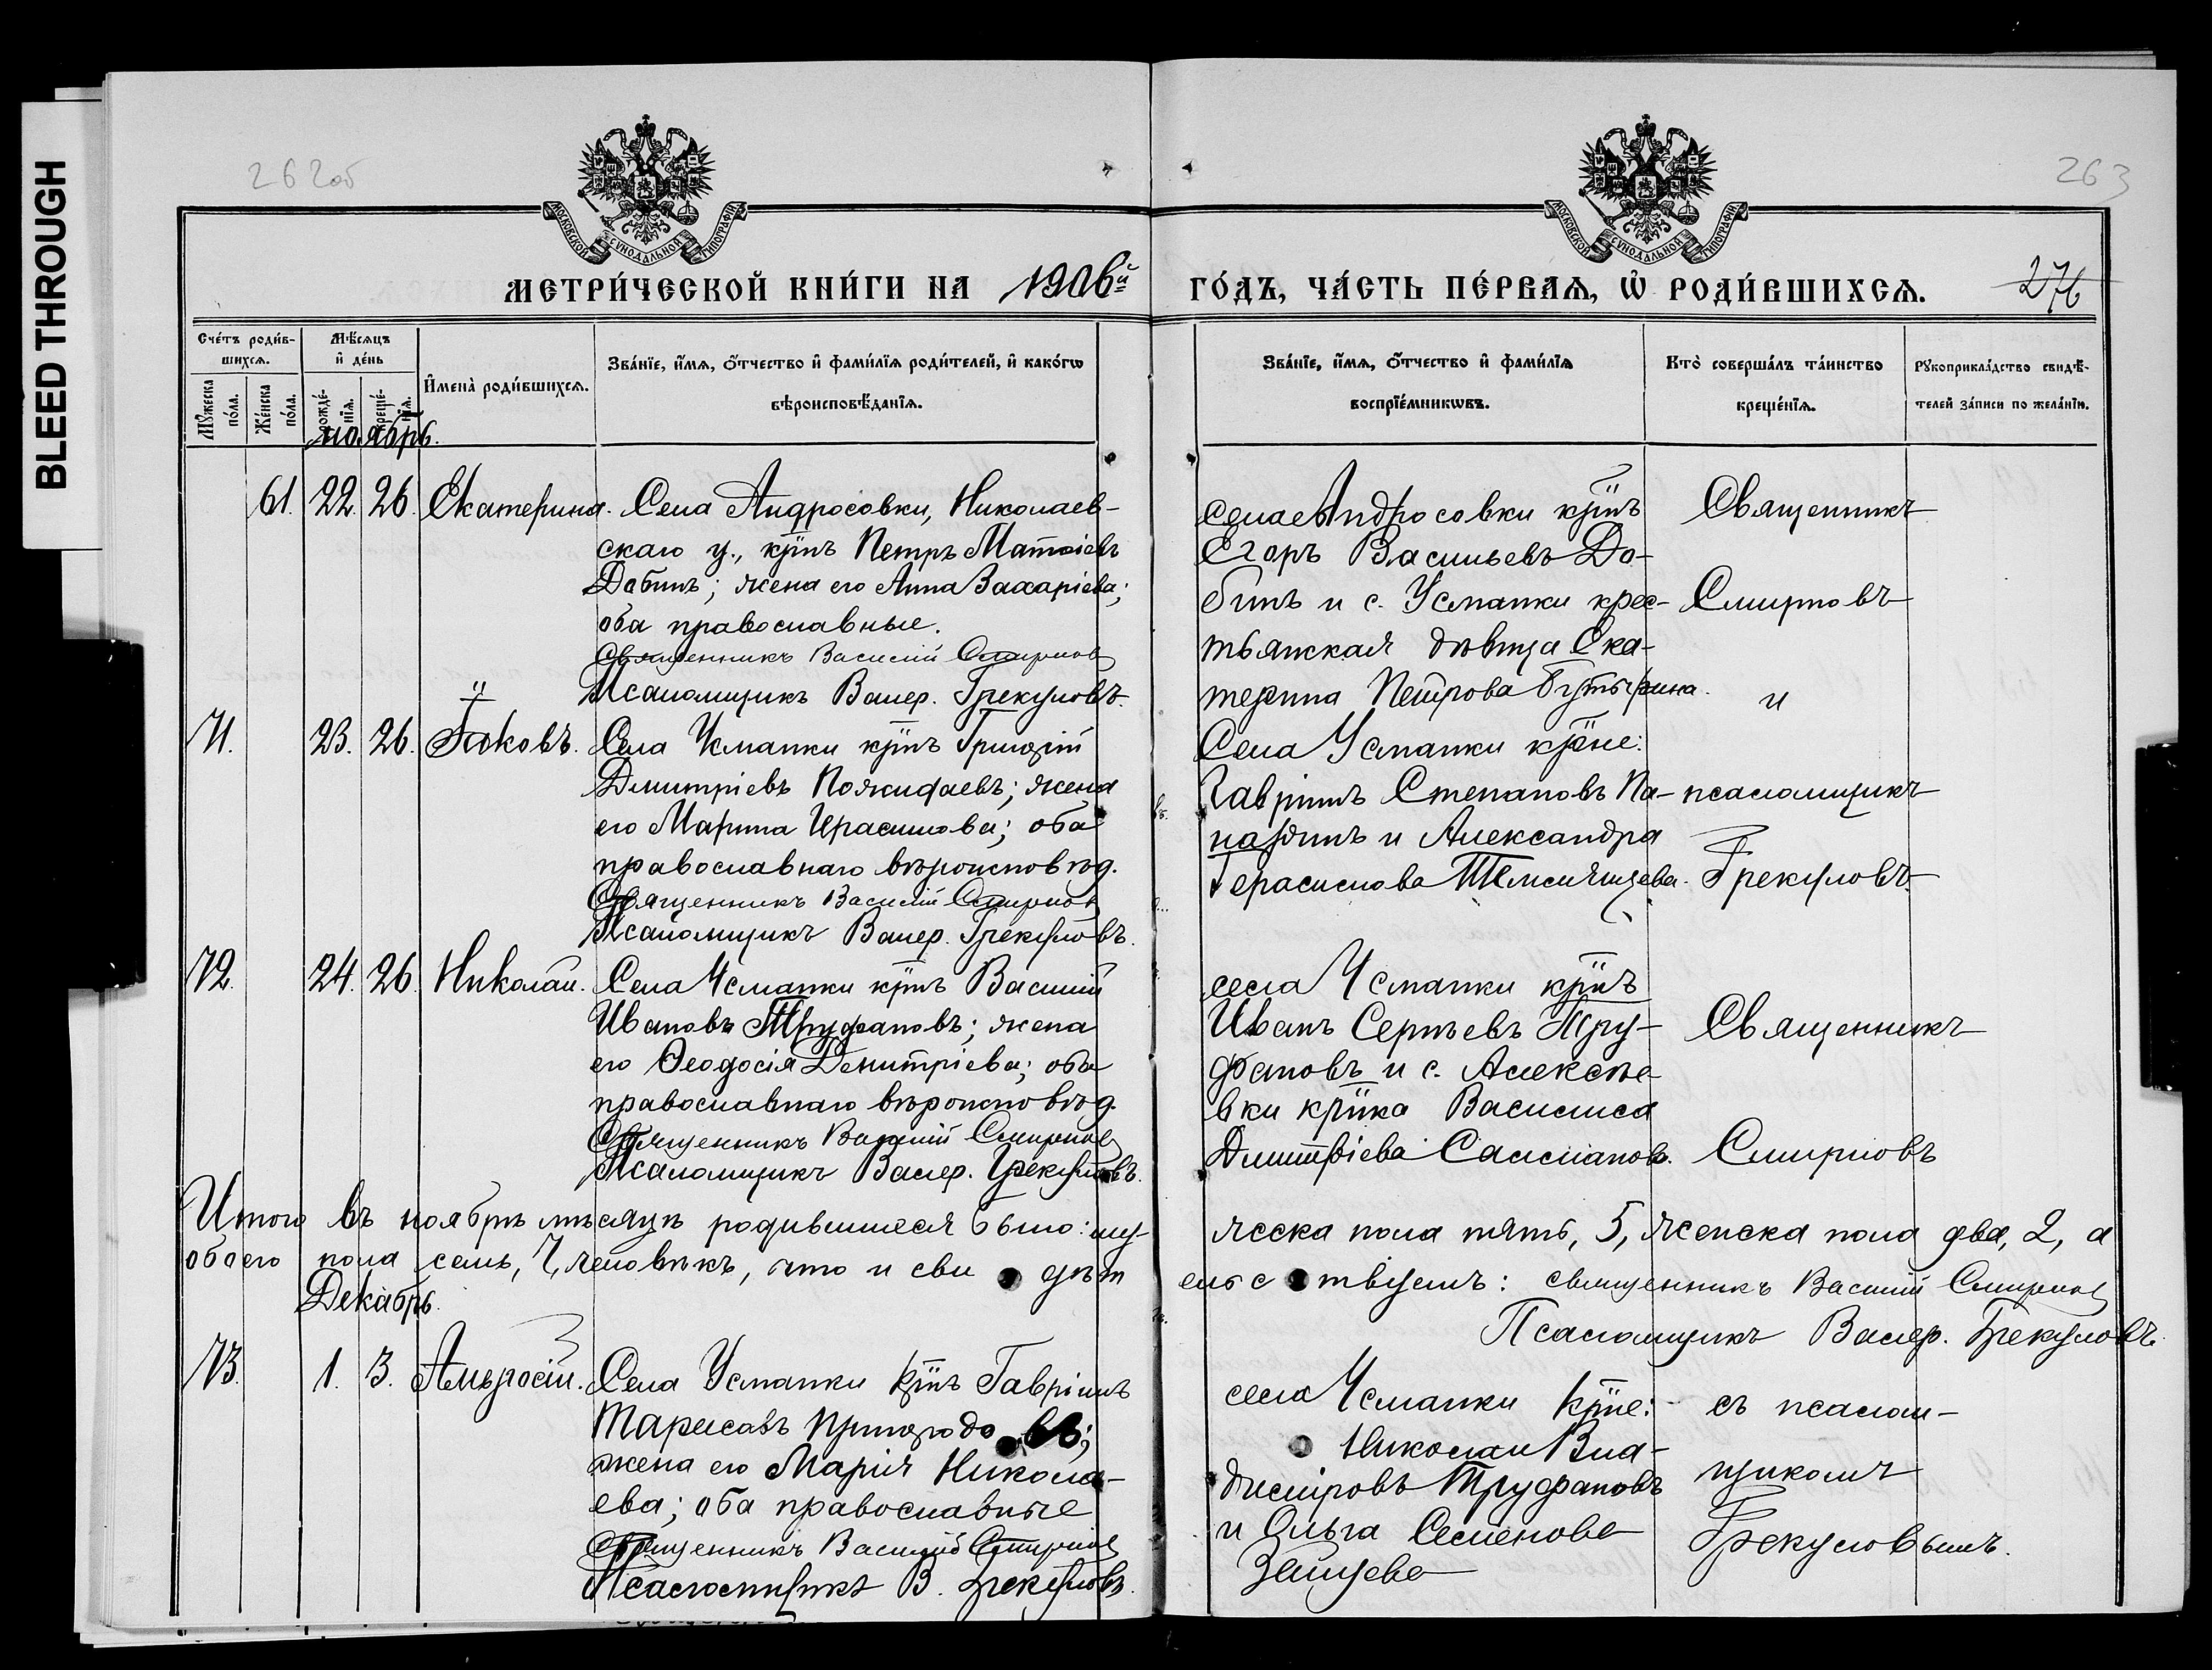 BLEED THROUGH
262об
263
МОСКОВСКОЙ СУНОДАЛЬНОЙ ТИПОГРАФІИ
МОСКОВСКОЙ СУНОДАЛЬНОЙ ТИПОГРАФІИ
МЕТРИ́ЧЕСКОЙ КНИ́ГИ НА 1906й
ГО́ДЪ, ЧА́СТЬ ПЕ́РВАѦ, Ѡ҆ РОДИ́ВШИХСѦ.
276
Сче́тъ роди́в-
шихсѧ.
Мꙋжеска по́ла.
Же́нска по́ла.
Мѣ́сѧцъ
и҆ де́нь
рожде́-
нїѧ.
креще́-
нїѧ.
И҆мена̀ роди́вшихсѧ.
Зва́нїе, и҆́мѧ, ѻ҆́тчество и҆ фами́лїѧ роди́телей, и҆ како́гѡ
вѣроисповѣ́данїѧ.
Зва́нїе, и҆́мѧ, ѻ҆́тчество и҆ фами́лїѧ
воспрїе́мникѡвъ.
Кто̀ соверша́лъ та́инство
креще́нїѧ.
Рꙋкоприкла́дство свидѣ́-
телей за́писи по жела́нїю.
ноябрь.
61. 22. 26. Екатерина. Села Андросовки, Николаев-
скаго у., крнъ Петръ Матѳіевъ
Добинъ; жена его Анна Захаріева;
оба православные.
Священникъ Василій Смирнов
Псаломщикъ Валер. Грекуловъ.
села Андросовки крнъ
Егоръ Васильевъ До-
бинъ и с. Усманки крес-
тьянская дѣвица Ека-
терина Петрова Бутырина.
Священникъ
Смирновъ
и
71. 23. 26. Іаковъ. Села Усманки крнъ Григорій
Дмитріевъ ; жена
его Марина ; оба
православнаго вѣроисповѣд.
Священникъ Василій Смирнов
Псаломщикъ Валер. Грекуловъ.
Села Усманки крне:
Гавріилъ Степановъ Па-
и Александра
Герасимова
псаломщикъ
Грекуловъ.
72. 24. 26. Николай. Села Усманки крнъ Василій
Ивановъ Труфановъ; жена
его Ѳеодосія Димитріева; оба
православнаго вѣроисповѣд.
Священникъ Василій Смирнов
Псаломщикъ Валер. Грекуловъ.
села Усманки крнъ
Иванъ Сергѣевъ Тру-
фановъ и с. Алексѣе-
вки крнка Василиса
Дмитріева
Священникъ
Смирновъ
Итого въ ноябрѣ мѣсяцѣ родившихся было: му-
жеска пола пять, 5, женска пола два, 2, а
обоего пола семь, 7, человѣкъ, что и сви дѣт
ельс твуемъ: священникъ Василій Смирнов
Псаломщикъ Валер. Грекуловъ.
Декабрь.
73. 1. 3. Амвросій. Села Усманки крнъ Гавріилъ
Тарасовъ
жена его Марія Никола-
ева; оба православные
Священникъ Василій Смирнов
Псаломщикъ В. Грекуловъ.
села Усманки крне:
Николай Вла-
диміровъ Труфановъ
и Ольга Семенова
Зайцева
съ псалом-
щикомъ
Грекуловымъ.